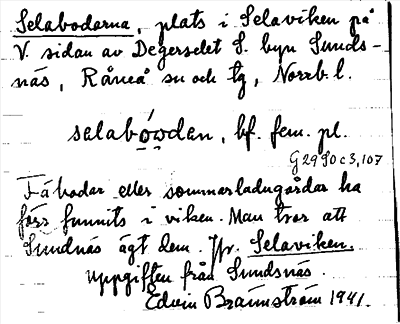 Selabodarna, plats i Selaviken på
V. sidan av Degerselet S. byn Sunds-
näs, Råneå sn och tg, Norrb. l.
selabówdan, bf. fem. pl.
G 29 90 c 3, 107
Fäbodar eller sommarladugårdar ha
förr funnits i viken. Man tror att
Sundnäs ägt dem. Jfr. Selaviken.
Uppgiften från Sundsnäs.
Edvin Brännström 1941.